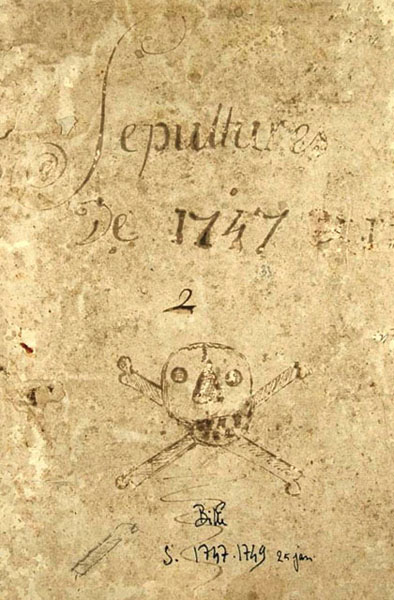 Sepultures
De 1747
2
S. 1747.1749 25 jan